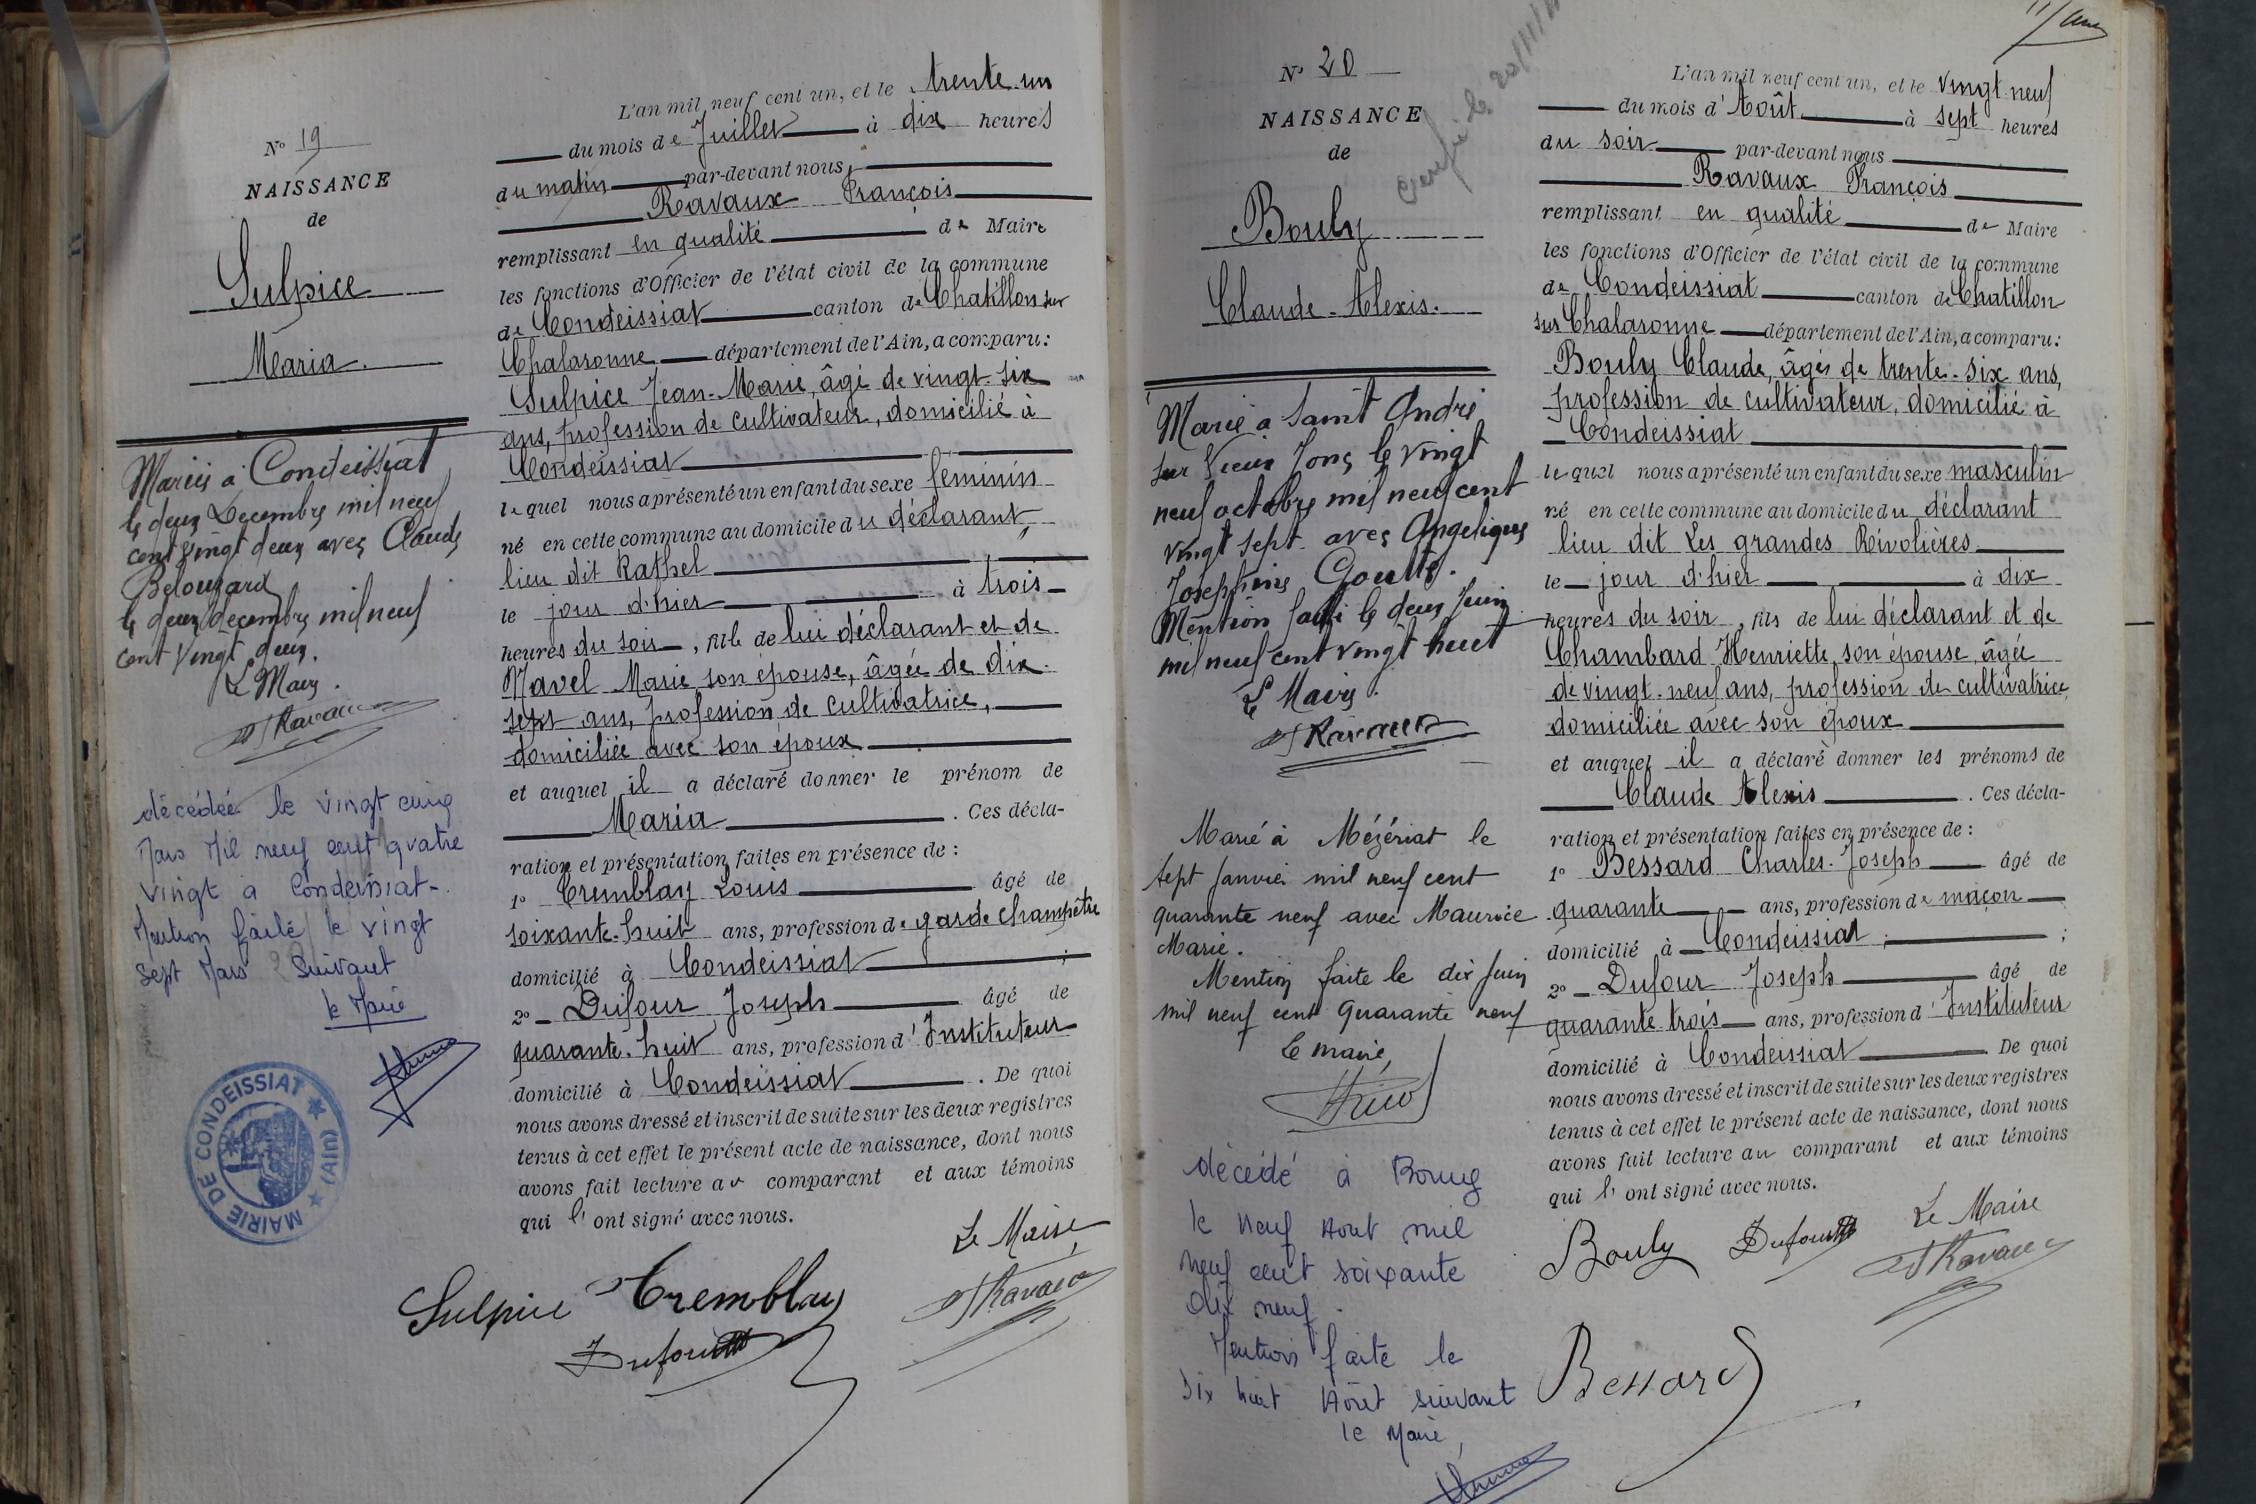 N° 19
NAISSANCE
de
Sulpice
Maria.
Mariée à Condeissiat
le deux Décembre mil neuf
cent vingt deux avec Claude
Belouzard
le deux décembre mil neuf
cent vingt deux.
Le Maire.
Ravaux
décédée le vingt cinq
Mars Mil neuf cent quatre
vingt à Condeissiat.
Mention faite le vingt
sept Mars suivant
le Maire
MAIRIE DE CONDEISSIAT (Ain)
L'an mil neuf cent un, et le trente-un
du mois de Juillet à dix heures
du matin par-devant nous,
Ravaux François
remplissant en qualité de Maire
les fonctions d'Officier de l'état civil de la commune
de Condeissiat canton de Chatillon sur
Chalaronne département de l'Ain, a comparu:
Sulpice Jean-Marie, âgé de vingt-six
ans, profession de cultivateur, domicilié à
Condeissiat
lequel nous a présenté un enfant du sexe féminin
né en cette commune au domicile du déclarant,
lieu dit Raphel
le jour d'hier à trois
heures du soir, fille de lui déclarant et de
Navel Marie son épouse, âgée de dix-
sept ans, profession de cultivatrice,
domiciliée avec son époux
et auquel il a déclaré donner le prénom de
Maria . Ces décla-
ration et présentation faites en présence de :
1° Tremblay Louis âgé de
soixante-huit ans, profession de garde champêtre
domicilié à Condeissiat ;
2° Dufour Joseph âgé de
quarante-huit ans, profession d'Instituteur
domicilié à Condeissiat . De quoi
nous avons dressé et inscrit de suite sur les deux registres
tenus à cet effet le présent acte de naissance, dont nous
avons fait lecture au comparant et aux témoins
qui l'ont signé avec nous.
Le Maire,
Sulpice Tremblay Ravaux
Dufour
N° 20
NAISSANCE
de
Bouly
Claude-Alexis.
Marié à Saint André
sur Vieux Jonc le vingt
neuf octobre mil neuf cent
vingt sept avec Angelique
Josephine Goutte.
Mention faite le deux Juin
mil neuf cent vingt huit
Le Maire.
Ravaux
Marié à Mézériat le
sept Janvier mil neuf cent
quarante neuf avec Maurice
Marie.
Mention faite le dix Juin
mil neuf cent Quarante neuf
Le maire,
décédé à Bourg
le neuf Aout mil
neuf cent soixante
dix neuf.
Mention faite le
dix huit Août suivant
le Maire,
L'an mil neuf cent un, et le vingt-neuf
du mois d'Août à sept heures
du soir par-devant nous
Ravaux François
remplissant en qualité de Maire
les fonctions d'Officier de l'état civil de la commune
de Condeissiat canton de Chatillon
sur Chalaronne département de l'Ain, a comparu:
Bouly Claude, âgés de trente-six ans,
profession de cultivateur, domicilié à
Condeissiat
lequel nous a présenté un enfant du sexe masculin
né en cette commune au domicile du déclarant
lieu dit Les grandes Rivolières
le jour d'hier à dix
heures du soir, fils de lui déclarant et de
Chambard Henriette son épouse, âgée
de vingt-neuf ans, profession de cultivatrice,
domiciliée avec son époux
et auquel il a déclaré donner les prénoms de
Claude Alexis . Ces décla-
ration et présentation faites en présence de :
1° Bessard Charles-Joseph âgé de
quarante ans, profession de maçon
domicilié à Condeissiat ;
2° Dufour Joseph âgé de
quarante-trois ans, profession d'Instituteur
domicilié à Condeissiat . De quoi
nous avons dressé et inscrit de suite sur les deux registres
tenus à cet effet le présent acte de naissance, dont nous
avons fait lecture au comparant et aux témoins
qui l'ont signé avec nous.
Le Maire
Bouly Dufour Ravaux
Bessard